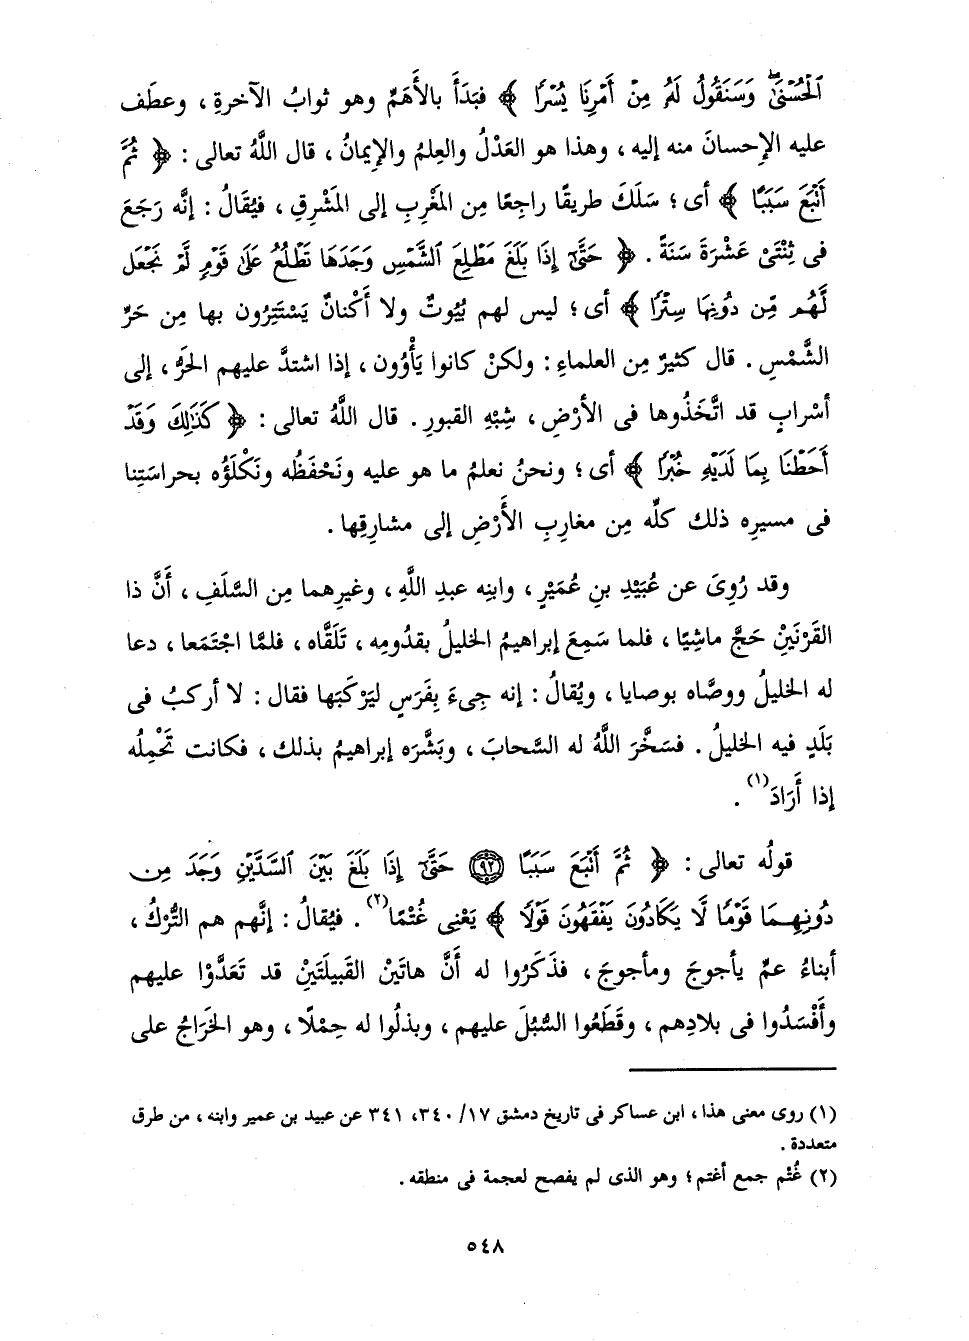 ٱلْحُسْنَىٰ ۖ وَسَنَقُولُ لَهُۥ مِنْ أَمْرِنَا يُسْرًا ﴾ فبَدَأَ بالأَهَمِّ وهو ثوابُ الآخرةِ ، وعطَف
عليه الإِحسانَ منه إليه ، وهذا هو العَدْلُ والعِلمُ والإِيمانُ ، قال اللَّهُ تعالى : ﴿ ثُمَّ
أَتْبَعَ سَبَبًا ﴾ أى ؛ سَلَكَ طريقًا راجعًا مِن المَغْرِبِ إلى المَشْرِقِ ، فيُقَالُ : إنَّه رَجَعَ
فى ثِنْتَىْ عَشْرَةَ سَنَةً . ﴿ حَتَّىٰٓ إِذَا بَلَغَ مَطْلِعَ ٱلشَّمْسِ وَجَدَهَا تَطْلُعُ عَلَىٰ قَوْمٍ لَّمْ نَجْعَل
لَّهُم مِّن دُونِهَا سِتْرًا ﴾ أى ؛ ليس لهم بُيُوتٌ ولا أَكْنانٌ يَسْتَتِرُون بها مِن حَرِّ
الشَّمْسِ . قال كثيرٌ مِن العلماءِ : ولكنْ كانوا يَأْوُون ، إذا اشتدَّ عليهم الحَرُّ ، إلى
أسْرابٍ قد اتَّخَذُوها فى الأرْضِ ، شِبْهِ القبورِ . قال اللَّهُ تعالى : ﴿ كَذَٰلِكَ وَقَدْ
أَحَطْنَا بِمَا لَدَيْهِ خُبْرًا ﴾ أى ؛ ونحنُ نعلمُ ما هو عليه ونَحْفَظُه ونَكْلَؤُه بحراسَتِنا
فى مسيرِه ذلك كلِّه مِن مغارِبِ الأَرْضِ إلى مشارِقِها .
وقد رُوِىَ عن عُبَيْدِ بنِ عُمَيْرٍ ، وابنِه عبدِ اللَّهِ ، وغيرِهما مِن السَّلَفِ ، أنَّ ذا
القَرْنَيْنِ حَجَّ ماشِيًا ، فلما سَمِعَ إبراهيمُ الخليلُ بقدُومِه ، تَلَقَّاه ، فلمَّا اجْتَمَعا ، دعا
له الخليلُ ووصَّاه بوصايا ، ويُقالُ : إنه جِىءَ بِفَرَسٍ ليَرْكَبَها فقال : لا أركبُ فى
بَلَدٍ فيه الخليلُ . فسَخَّرَ اللَّهُ له السَّحابَ ، وبَشَّرَه إبراهيمُ بذلك ، فكانت تَحْمِلُه
إذا أَرَادَ (١) .
قولُه تعالى : ﴿ ثُمَّ أَتْبَعَ سَبَبًا ۝٩٢ حَتَّىٰٓ إِذَا بَلَغَ بَيْنَ ٱلسَّدَّيْنِ وَجَدَ مِن
دُونِهِمَا قَوْمًا لَّا يَكَادُونَ يَفْقَهُونَ قَوْلًا ﴾ يَعْنِى غُتْمًا (٢) . فيُقالُ : إنَّهم هم التُّرْكُ ،
أبناءُ عمِّ يأجوجَ ومأجوجَ ، فذَكَرُوا له أنَّ هاتَيْنِ القَبيلَتَيْنِ قد تَعَدَّوْا عليهم
وأَفْسَدُوا فى بلادِهم ، وقَطَعُوا السُّبُلَ عليهم ، وبذلُوا له حِمْلًا ، وهو الخَرَاجُ على
(١) روى معنى هذا ، ابن عساكر فى تاريخ دمشق ١٧/ ٣٤٠، ٣٤١ عن عبيد بن عمير وابنه ، من طرق
متعددة .
(٢) غُتْم جمع أغتم ؛ وهو الذى لم يفصح لعجمة فى منطقه .
٥٤٨